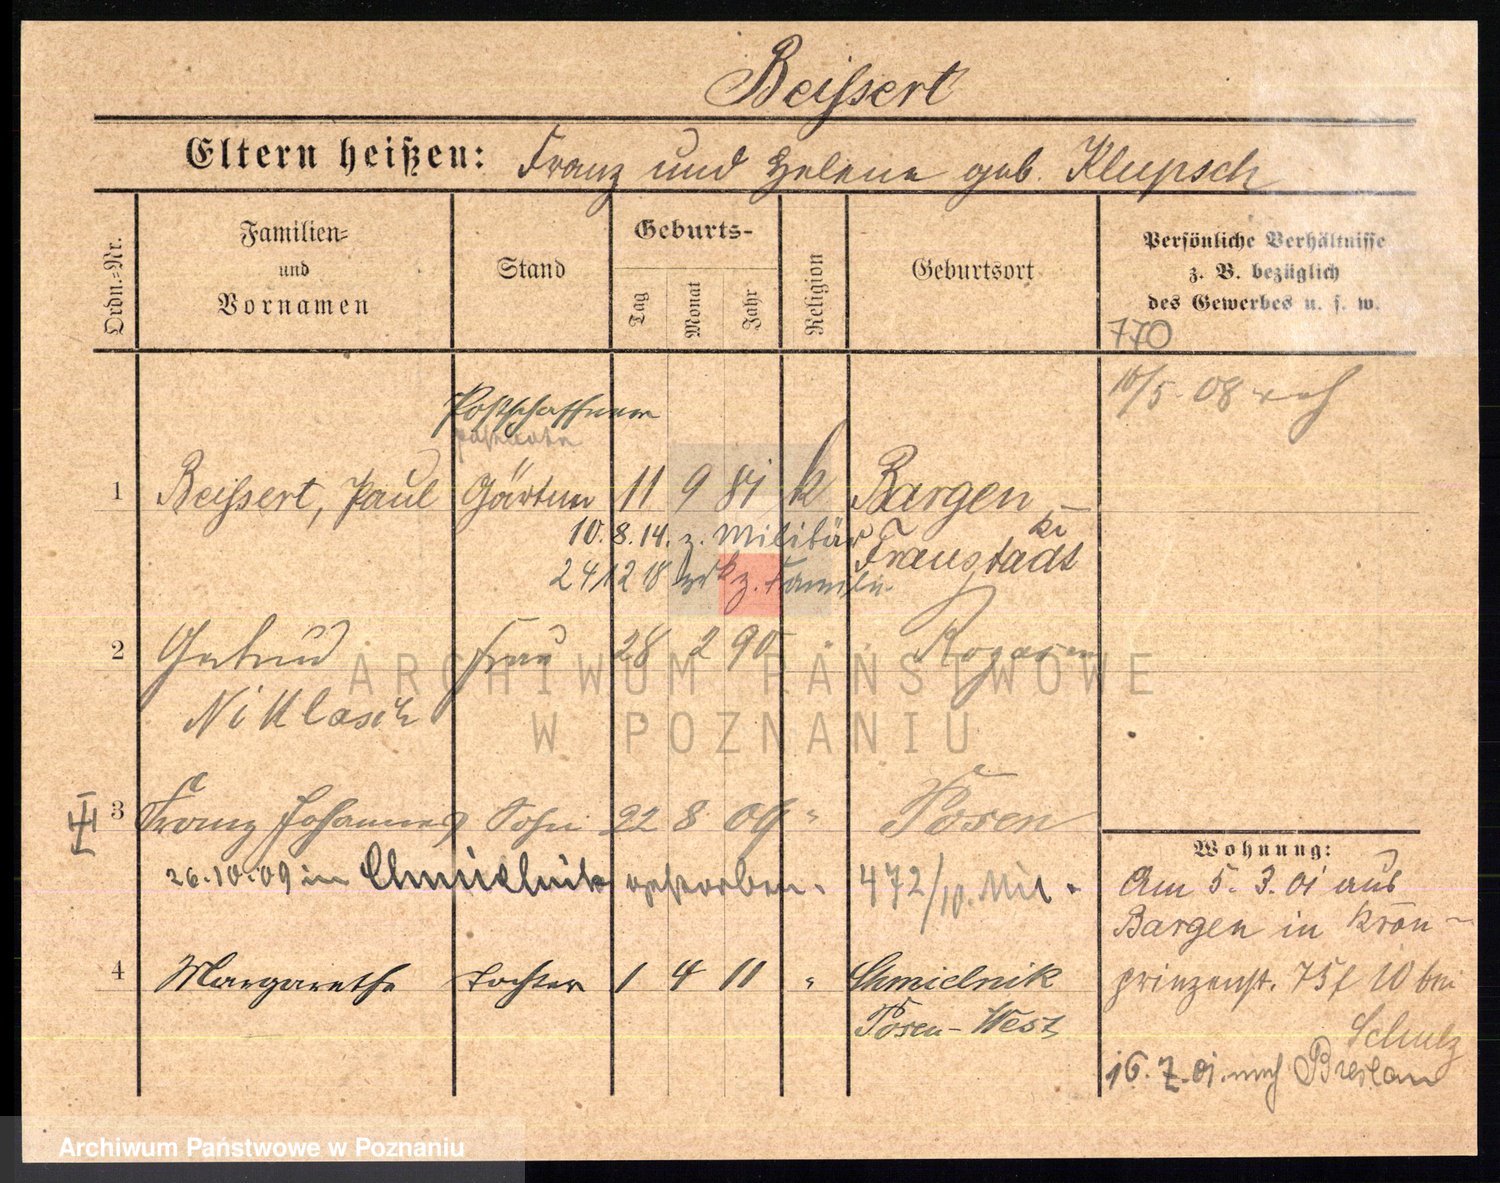 Beißert
Eltern heißen: Franz und Helene geb. Klupsch
Ordn.-Nr.
Familien- und Vornamen
Stand
Geburts-
Tag
Monat
Jahr
Religion
Geburtsort
Persönliche Verhältnisse
z. B. bezüglich
des Gewerbes u. s. w.
770
10/5. 08
Postschaffner
1 Beißert, Paul Gärtner 11 9 81 k Bargen
10.8.14. z. Militär Kr
Fraustadt
24 12 18 z. Familie.
2 Gertrud Frau 28 2 90 " Rogasen
Niklasch
3 Franz Johannes Sohn 22 8 09 " Posen
26.10.09 in Chmielnik gestorben. 472/10.
4 Margarethe Tochter 1 4 11 " Chmielnik
Posen-West
Wohnung:
Am 5. 3. 01 aus
Bargen in Kron-
prinzenst. 75 10 bei
Schulz
16. 7. 01. nach Breslau
ARCHIWUM PAŃSTWOWE
W POZNANIU
Archiwum Państwowe w Poznaniu